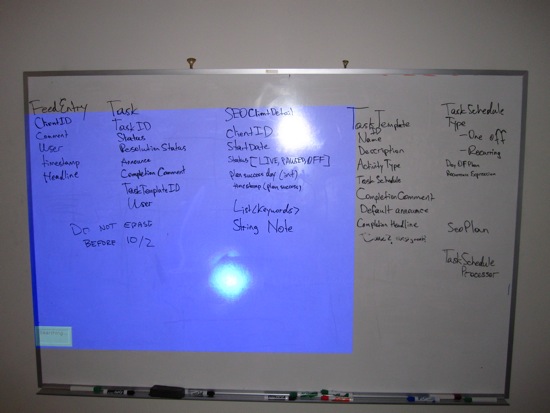 FeedEntry
ClientID
Comment
User
timestamp
Headline
Task
TaskID
Status
Resolution Status
Announce
Completion Comment
TaskTemplateID
User
DO NOT ERASE
BEFORE 10/2
SEOClientDetail
ClientID
StartDate
Status [LIVE, PAUSED, OFF]
plan success day (int)
timestamp (plan success)
List<Keywords>
String Note
TaskTemplate
ID
Name
Description
ActivityType
Task Schedule
CompletionComment
Default announce
Completion Headline
TaskSchedule
Type
- One off
- Recurring
Day Of Plan
Recurrence Expression
SeoPlan
TaskSchedule
Processor